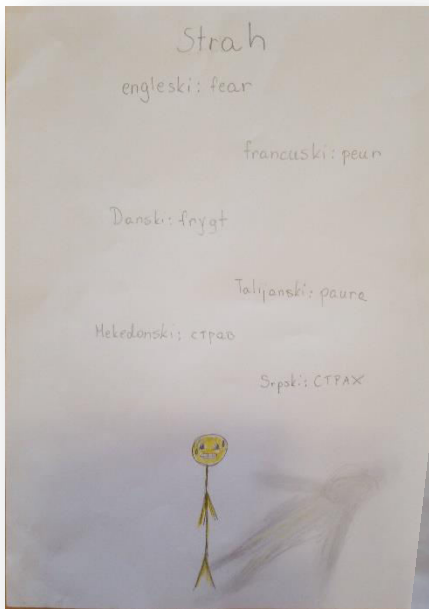 Strah
engleski: fear
francuski: peur
Danski: frygt
Talijanski: paura
Mekedonski: страв
Srpski: СТРАХ